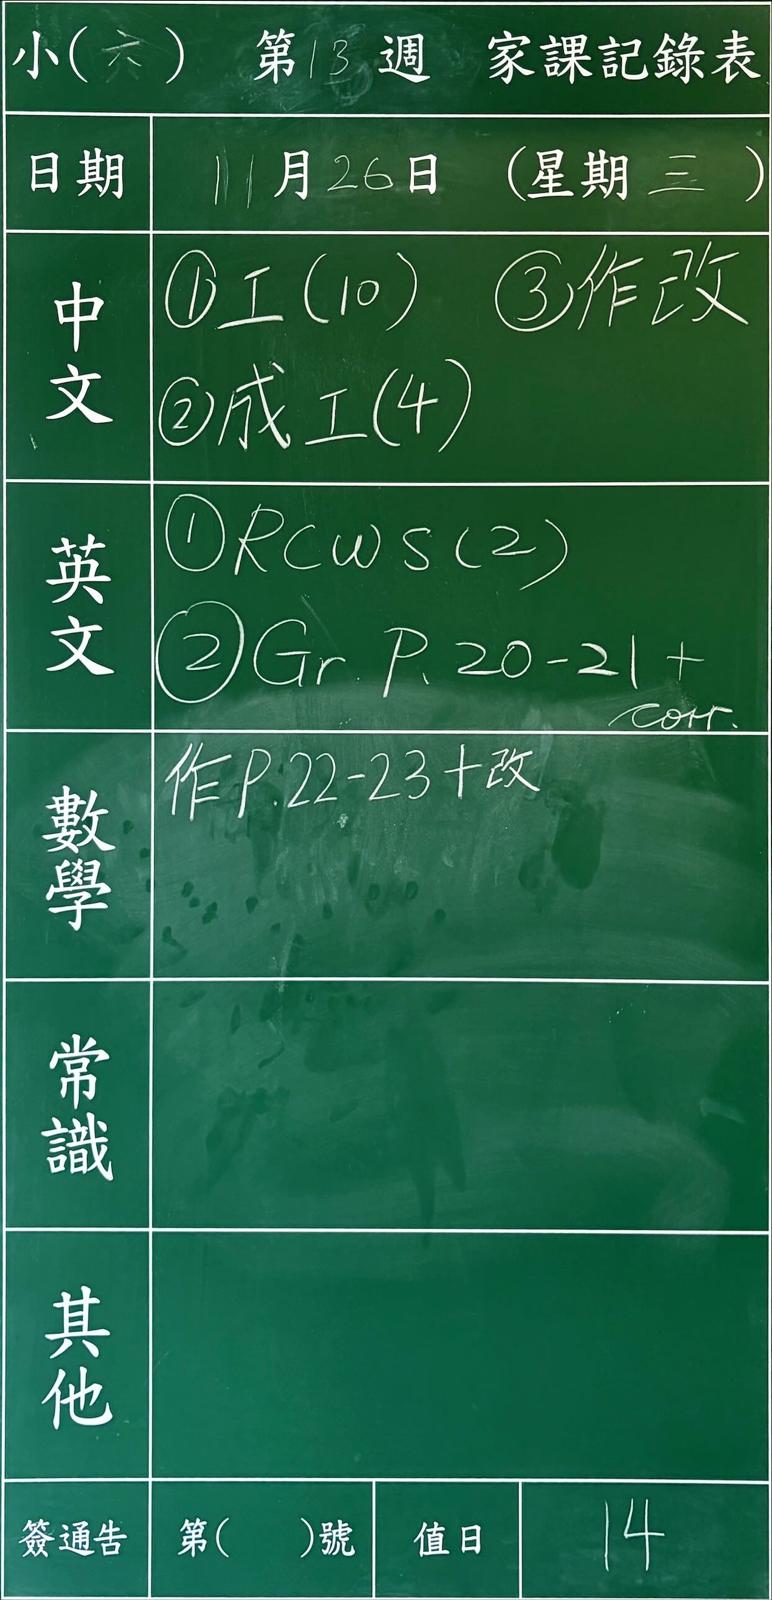 小(六) 第13週 家課記錄表
日期 11月26日 (星期三)
中文
①工(10) ③作改
②成工(4)
英文
①RCWS(2)
②Gr. P. 20-21+
corr.
數學
作P.22-23+改
常識
其他
簽通告 第( )號 值日 14